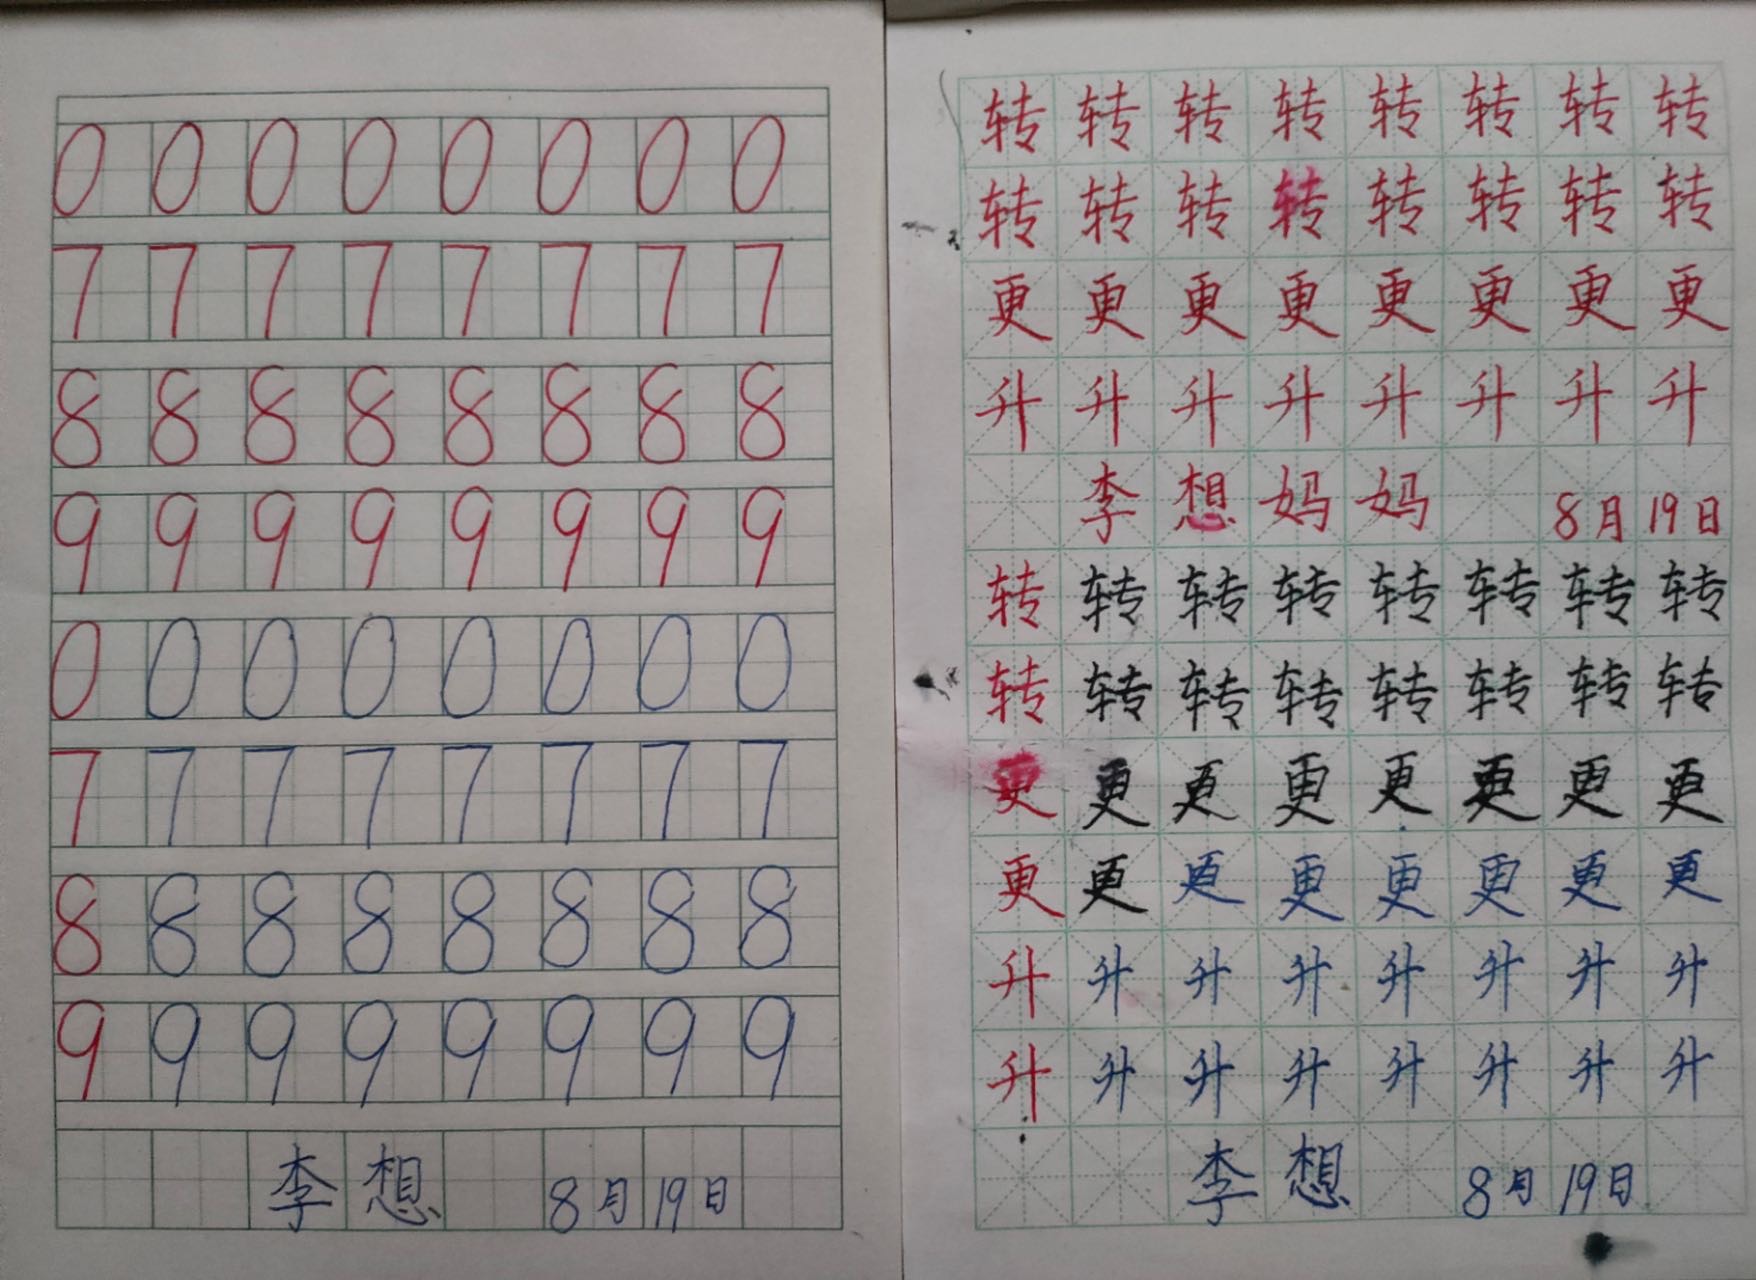 0 0 0 0 0 0 0 0
7 7 7 7 7 7 7 7
8 8 8 8 8 8 8 8
9 9 9 9 9 9 9 9
0 0 0 0 0 0 0 0
7 7 7 7 7 7 7 7
8 8 8 8 8 8 8 8
9 9 9 9 9 9 9 9
李想 8月19日
转 转 转 转 转 转 转 转
转 转 转 转 转 转 转 转
更 更 更 更 更 更 更 更
升 升 升 升 升 升 升 升
李想妈妈 8月19日
转 转 转 转 转 转 转 转
转 转 转 转 转 转 转 转
更 更 更 更 更 更 更 更
更 更 更 更 更 更 更 更
升 升 升 升 升 升 升 升
升 升 升 升 升 升 升 升
李想 8月19日